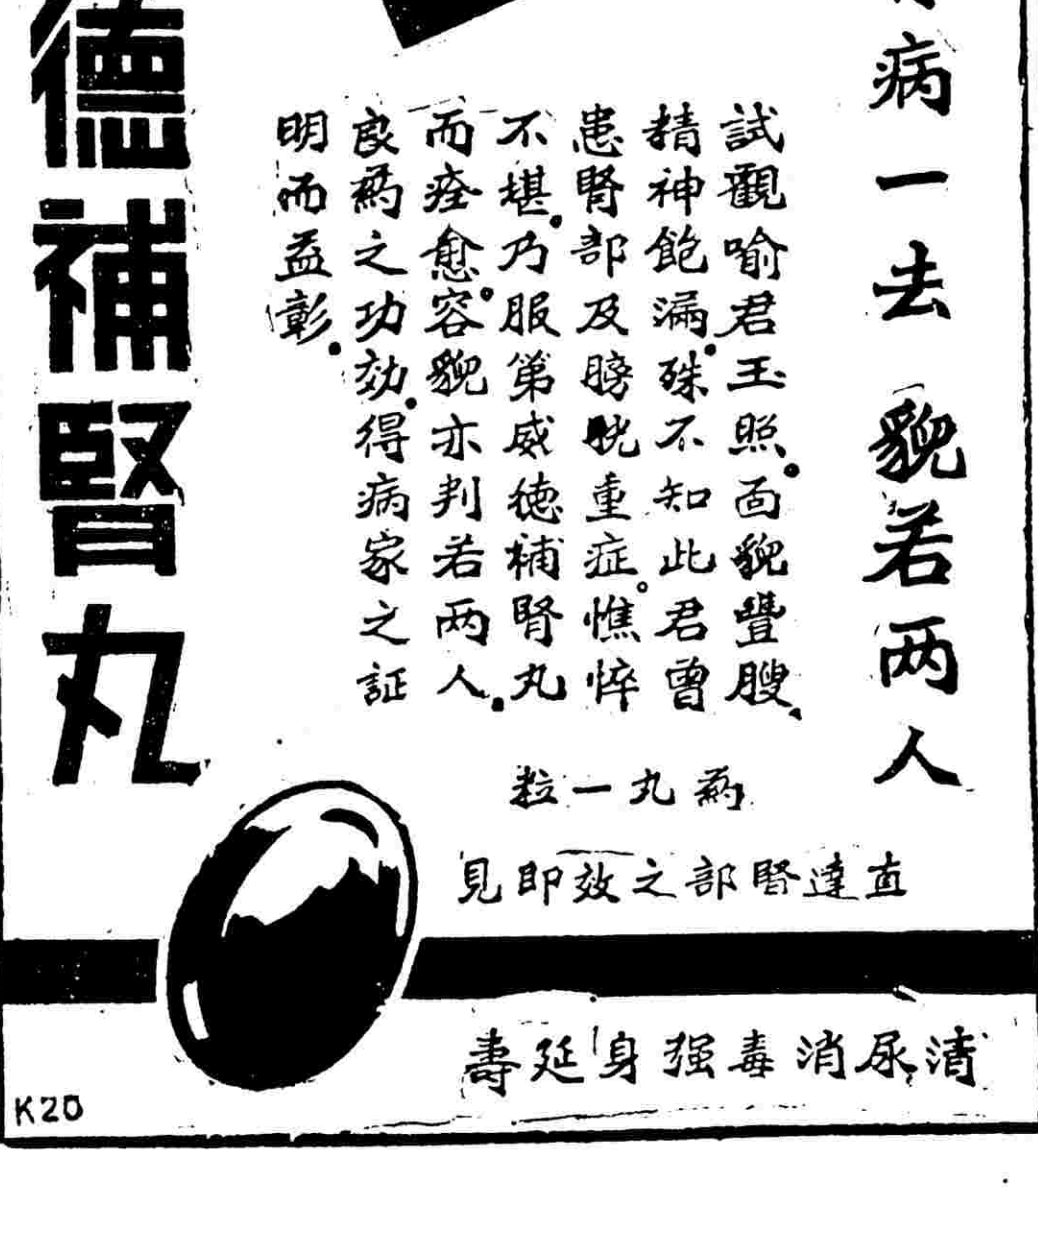 病一去 貌若两人
試觀喻君玉照。面貌豐腴、
精神飽滿。殊不知此君曾
患腎部及膀胱重症。憔悴
不堪。乃服第威德補腎丸
而痊愈。容貌亦判若两人。
良药之功効。得病家之証
明而益彰。
药丸一粒
直達腎部之效即見
清尿消毒强身延壽
德補腎丸
K20